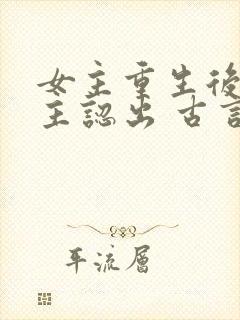 女主重生後
主認出 古言
平流層